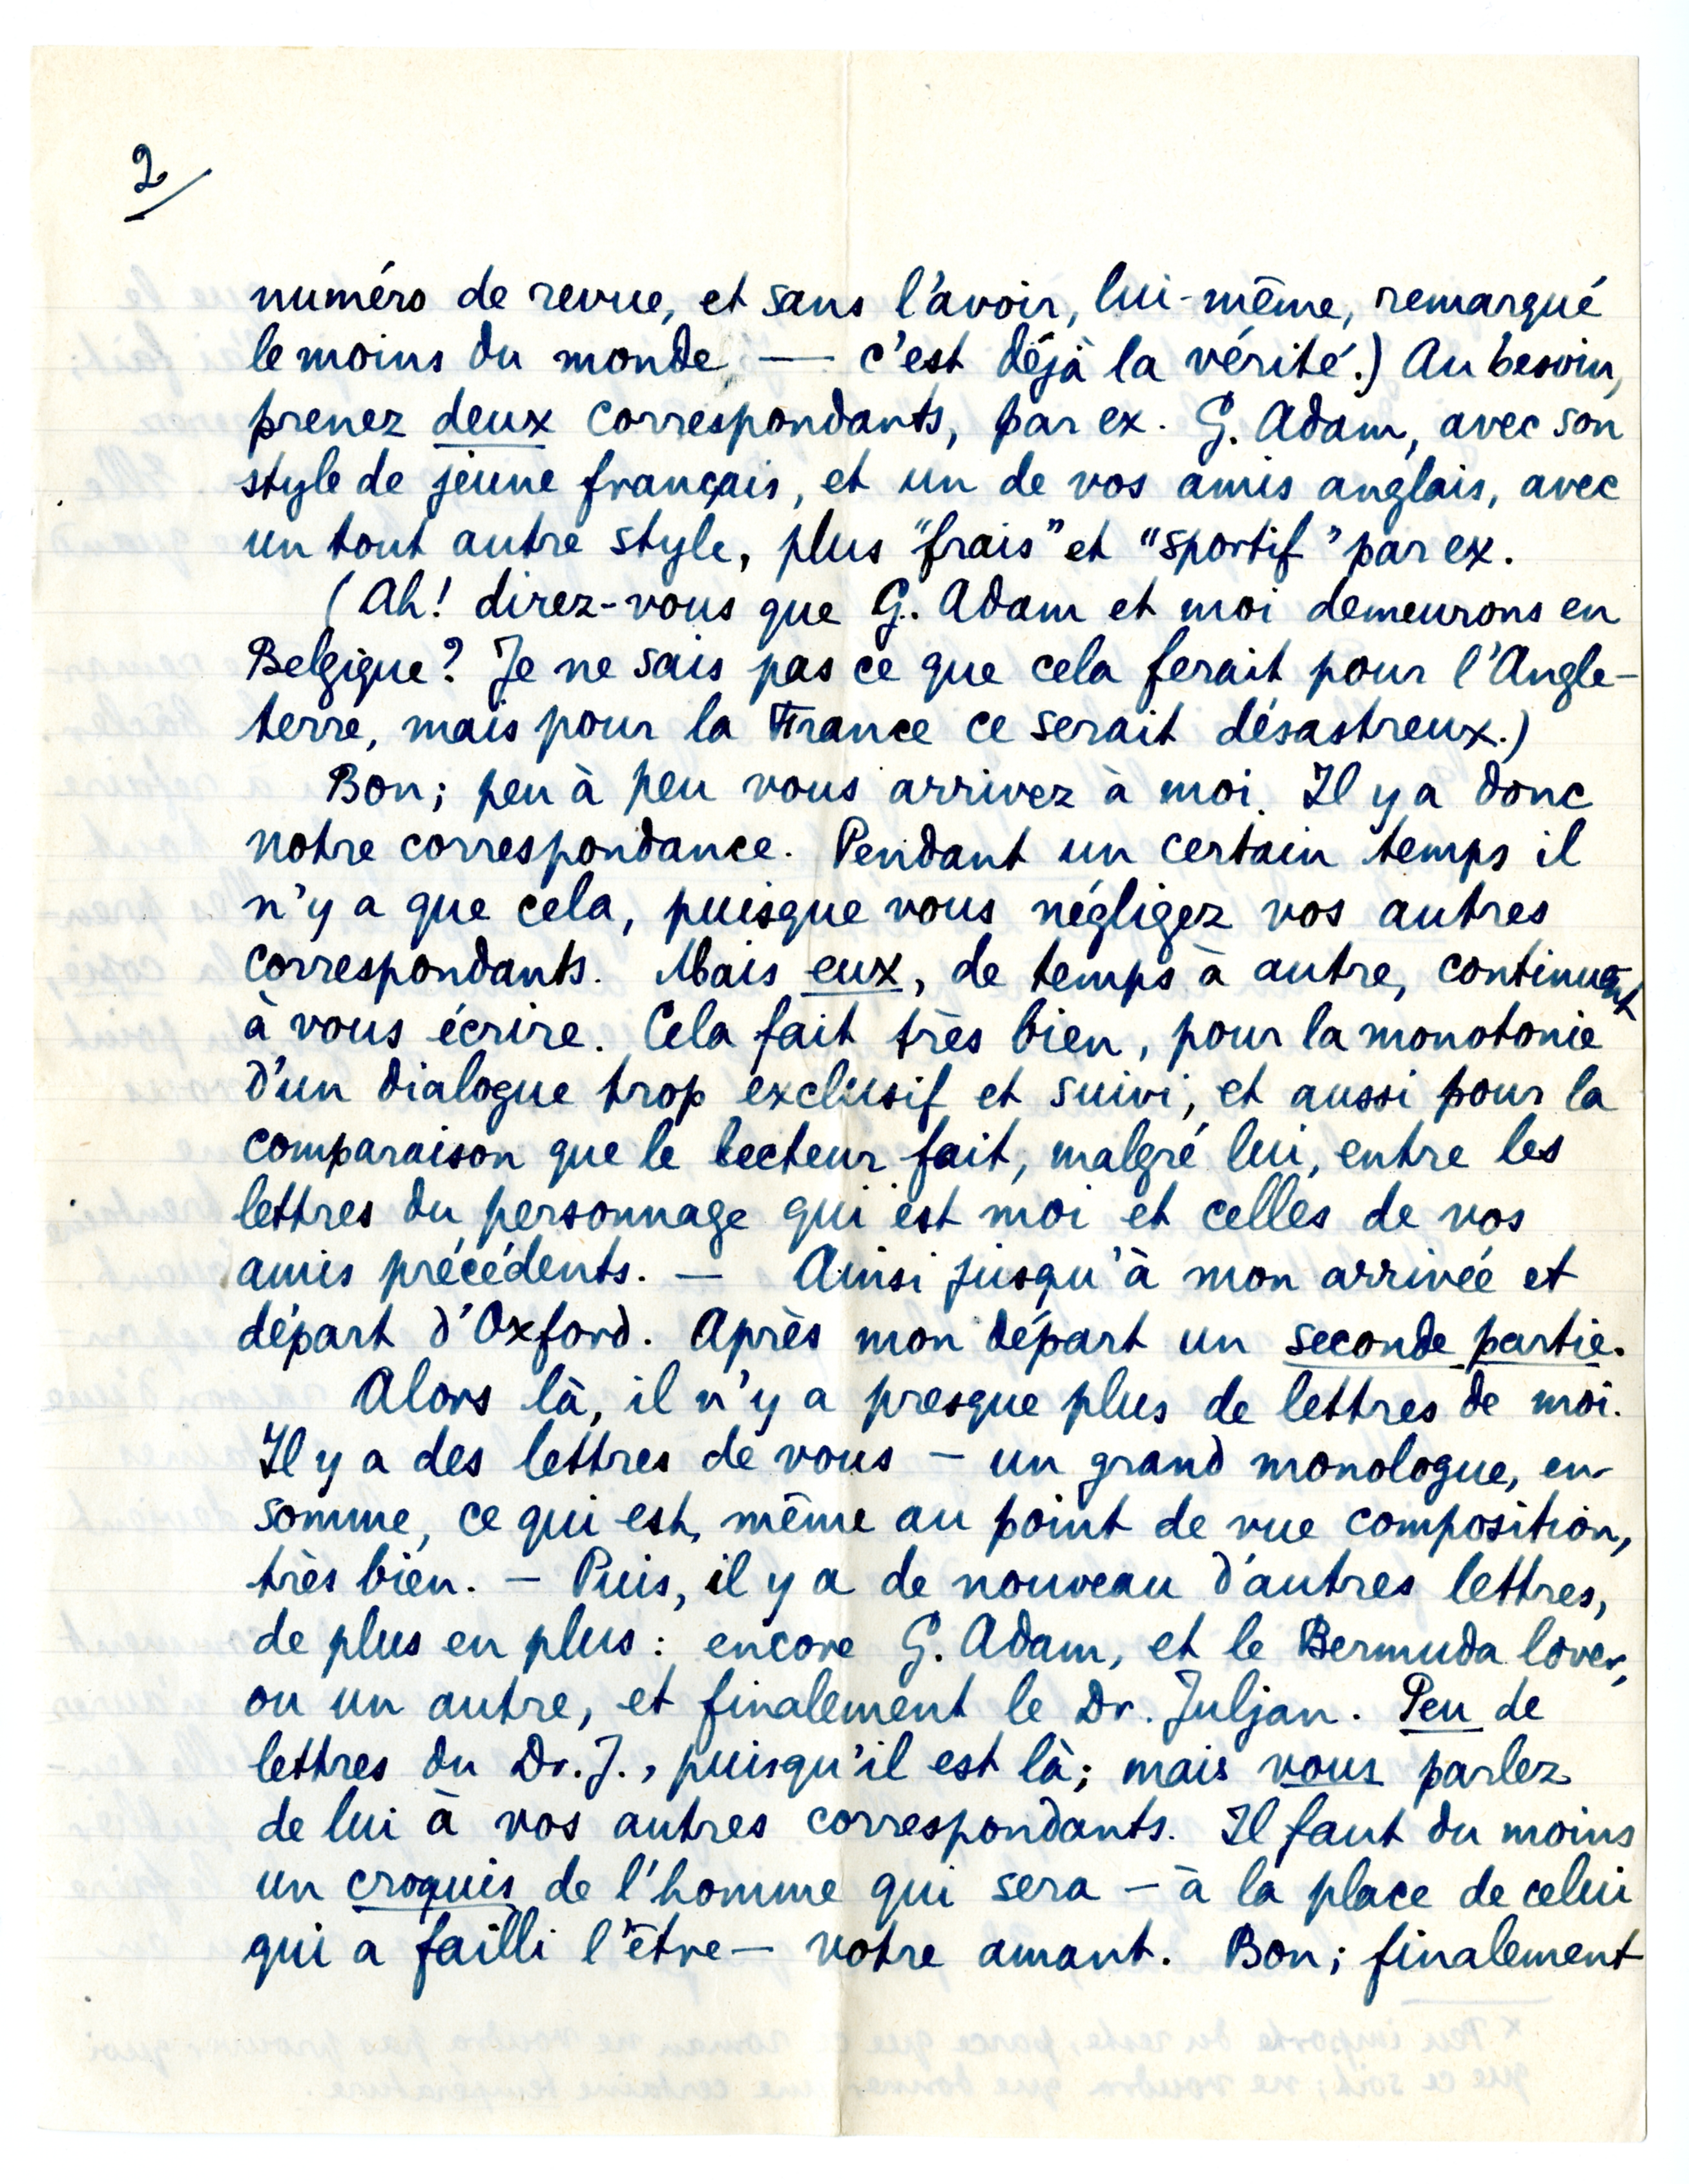 2/
numéro de revue, et sans l'avoir, lui-même, remarqué
le moins du monde, — c'est déjà la vérité.) Au besoin,
prenez deux correspondants, par ex. G. Adam, avec son
style de jeune français, et un de vos amis anglais, avec
un tout autre style, plus "frais" et "sportif" par ex.
(Ah! direz-vous que G. Adam et moi demeurons en
Belgique? Je ne sais pas ce que cela ferait pour l'Angle-
terre, mais pour la France ce serait désastreux.)
Bon; peu à peu vous arrivez à moi. Il y a donc
notre correspondance. Pendant un certain temps il
n'y a que cela, puisque vous négligez vos autres
correspondants. Mais eux, de temps à autre, continuent
à vous écrire. Cela fait très bien, pour la monotonie
d'un dialogue trop exclusif et suivi, et aussi pour la
comparaison que le lecteur fait, malgré lui, entre les
lettres du personnage qui est moi et celles de vos
amis précédents. — Ainsi jusqu'à mon arrivée et
départ d'Oxford. Après mon départ un seconde partie.
Alors là, il n'y a presque plus de lettres de moi.
Il y a des lettres de vous — un grand monologue, en
somme, ce qui est, même au point de vue composition,
très bien. — Puis, il y a de nouveau d'autres lettres,
de plus en plus: encore G. Adam, et le Bermuda lover,
ou un autre, et finalement le Dr. Juljan. Peu de
lettres du Dr. J., puisqu'il est là; mais vous parlez
de lui à vos autres correspondants. Il faut du moins
un croquis de l'homme qui sera — à la place de celui
qui a failli l'être — votre amant. Bon; finalement